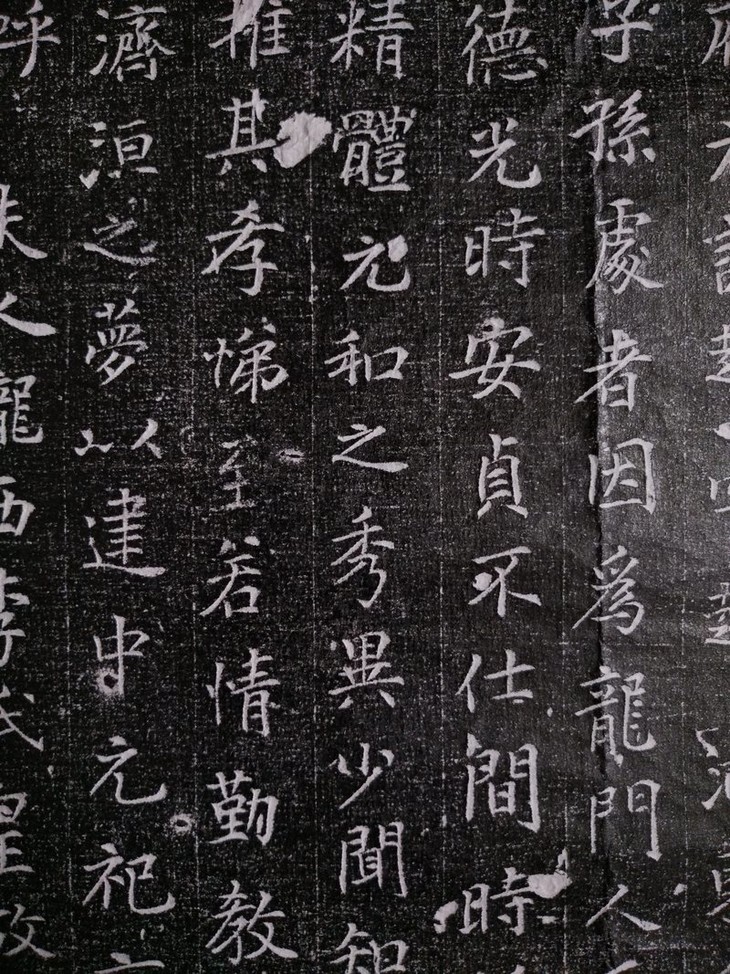 子孫處者因爲龍門人
德光時安貞不仕間時
精體元和之秀異少聞知
推其孝悌至若情勤教
濟洹之夢以建中元祀
呼夫人隴西李氏皇攷